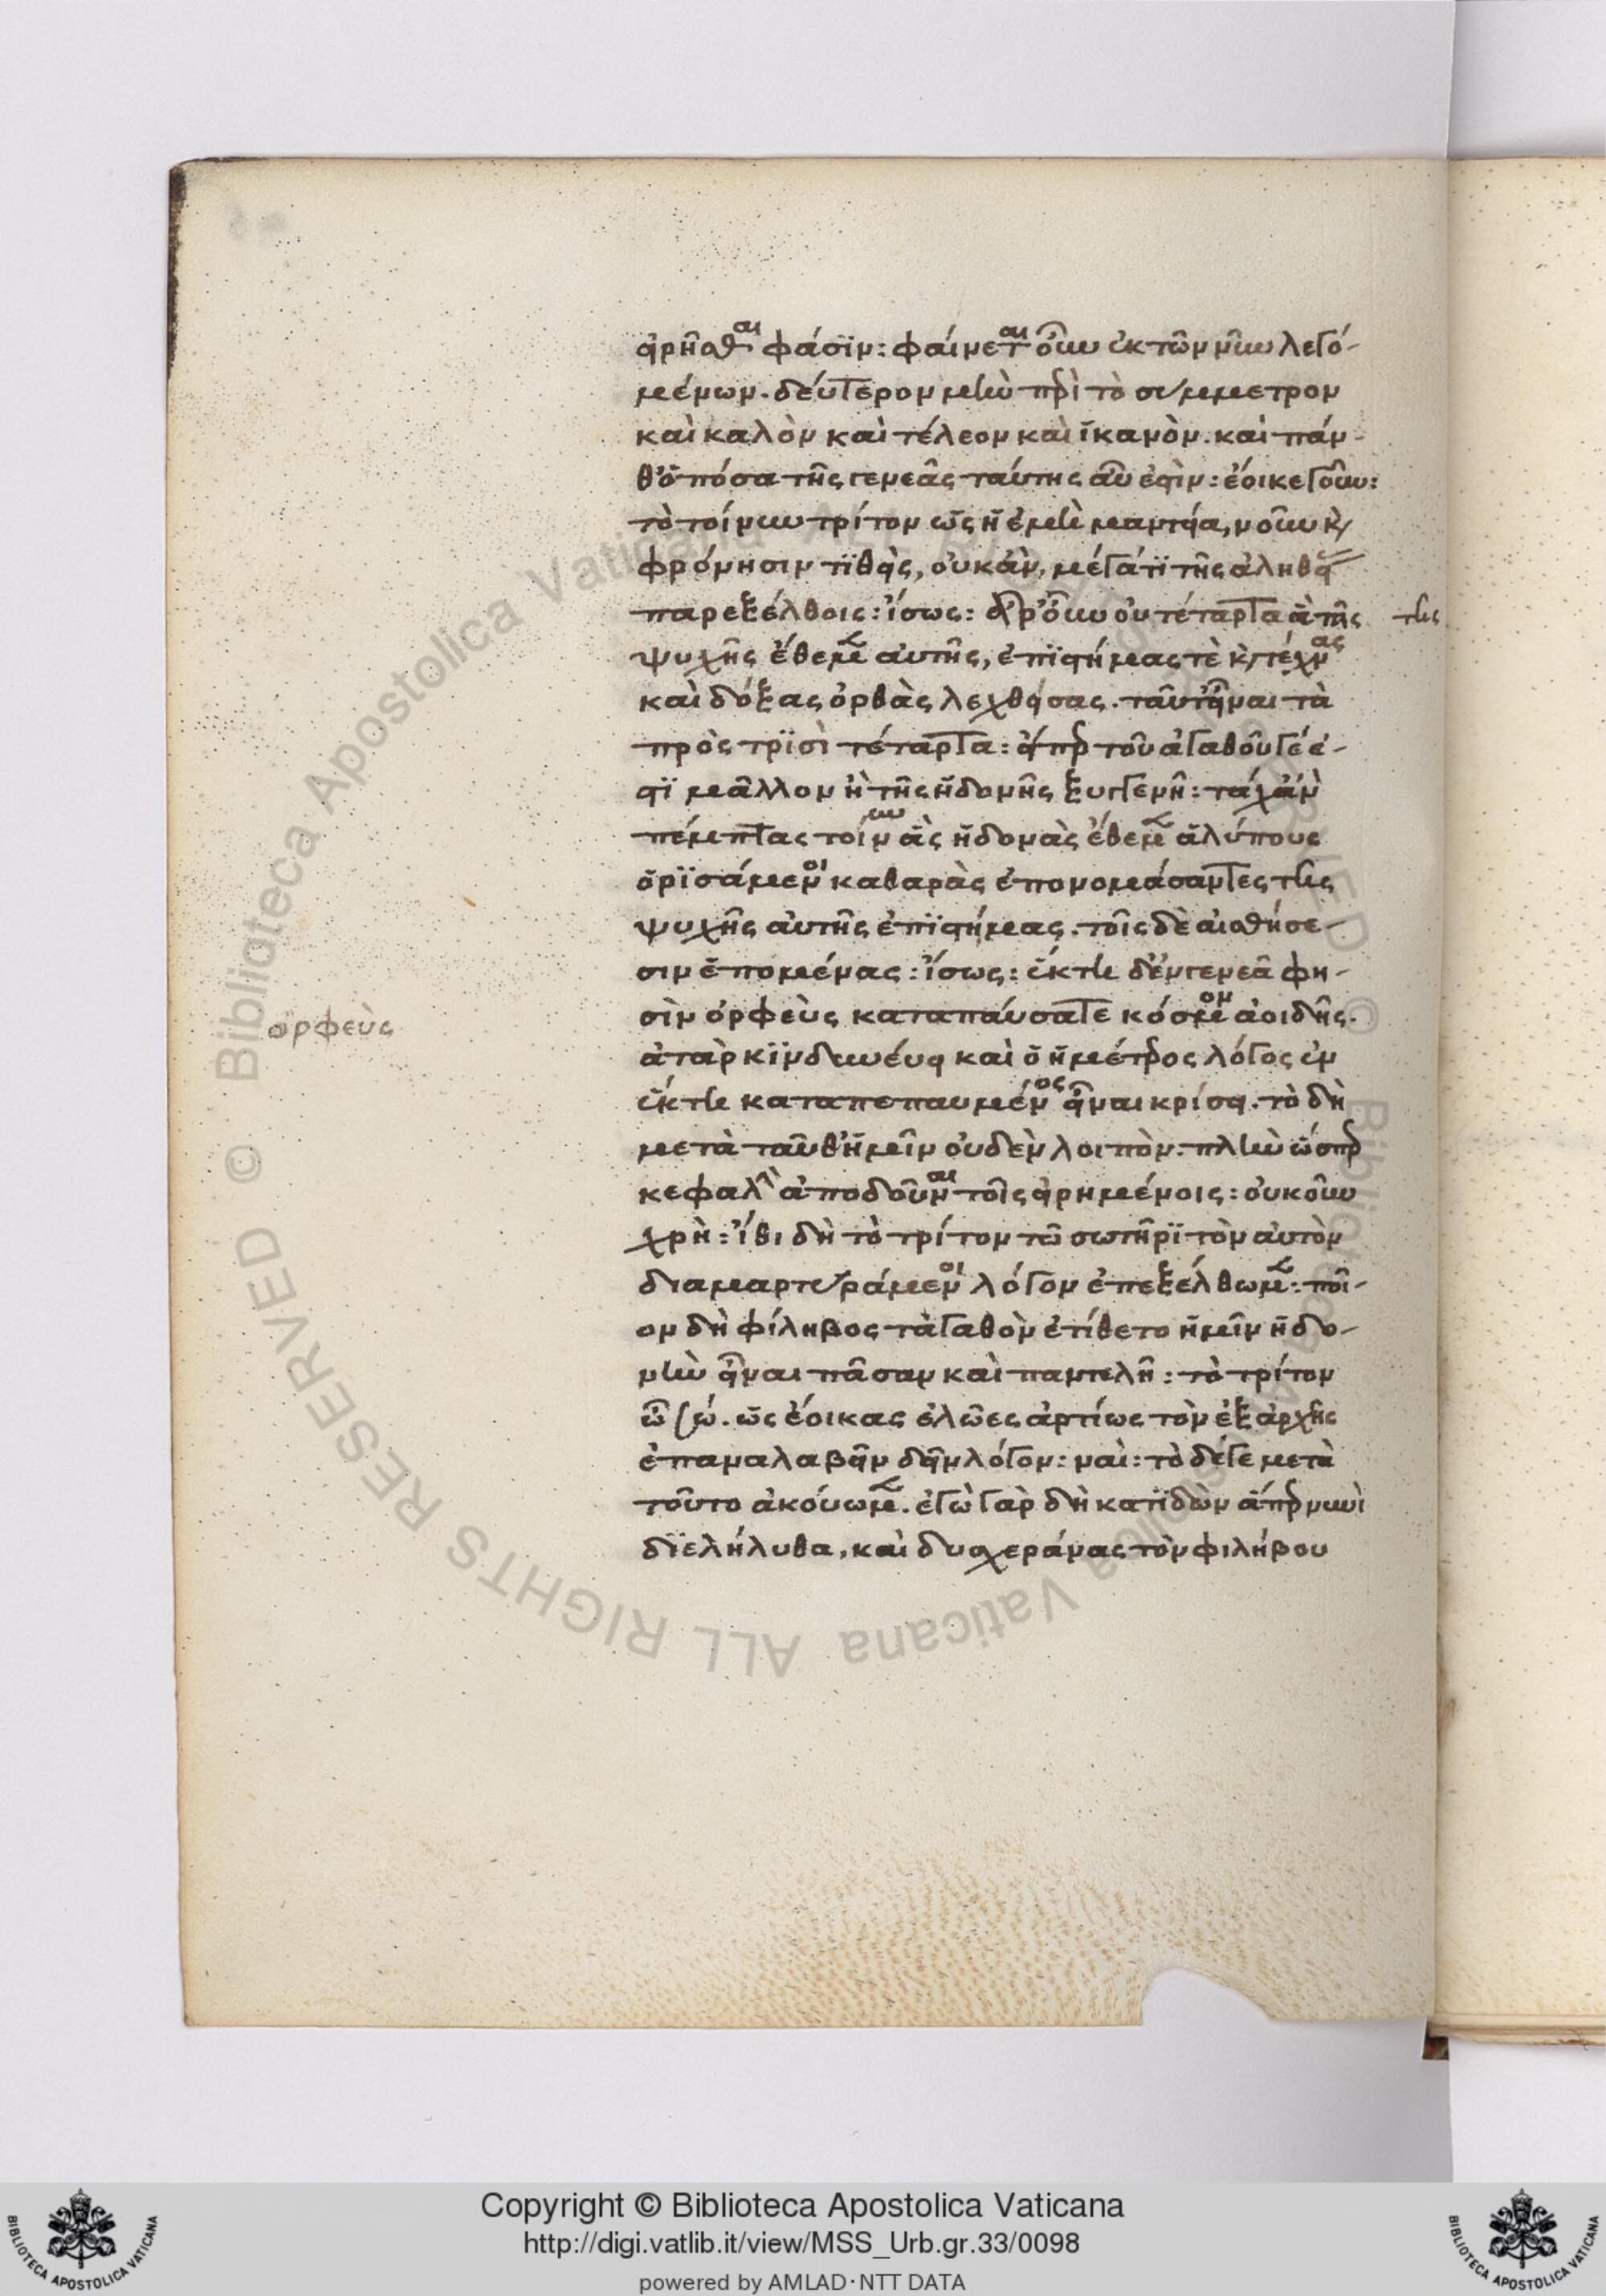 εἰρῆσθαι φάσϊν: φαίνεται οὖν ἐκ τῶν νῦν λεγο-
μένων. δεύτερον μὴν περὶ τὸ σύμμετρον
καὶ καλὸν καὶ τέλεον καὶ ἱκανὸν. καὶ πάν-
θ' ὁπόσα τῆς γενεᾶς ταύτης αὖ ἐστὶν: ἔοικε γοῦν:
τὸ τοίνυν τρίτον ὡς ἡ ἐμὴ μαντεία, νοῦν κ(αὶ)
φρόνησιν τϊθεὶς, οὐκ ἂν, μέγα τϊ τῆς ἀληθεί(ας)
παρεξέλθοις: ἴσως: ἆρ' οὖν οὐ τέταρτα ἃ τῆς
τῆς
ψυχῆς ἔθεμεν αὐτῆς, ἐπϊστήμας τὲ κ(αὶ) τέχνας
καὶ δόξας ὀρθὰς λεχθείσας. ταῦτ' εἶναι τὰ
πρὸς τρϊσὶ τέταρτα: εἴπερ τοῦ ἀγαθοῦ γέ ἐ-
στϊ μᾶλλον ἢ τῆς ἡδονῆς ξυγγενῆ: τάχ' ἂν
πέμπτας τοίνυν ἃς ἡδονὰς ἔθεμεν ἀλύπους
ὁρϊσάμενοι καθαρὰς ἐπονομάσαντες τῆς
ψυχῆς αὐτῆς ἐπϊστήμας. τοῖς δὲ αἰσθήσε-
σιν ἑπομένας: ἴσως: ἕκτη δ' ἐν γενεᾶ φη-
σὶν ὀρφεὺς καταπαύσατε κόσμον ἀοιδῆς.
ὀρφεὺς
ἀτὰρ κϊνδυνεύει καὶ ὁ ἡμέτερος λόγος ἐν
ἕκτη καταπεπαυμένος εἶναι κρίσει. τὸ δὴ
μετὰ ταῦθ' ἡμῖν οὐδὲν λοιπὸν. πλὴν ὥσπερ
κεφαλὴν ἀποδοῦναι τοῖς εἰρημένοις: οὐκοῦν
χρὴ: ἴθι δὴ τὸ τρίτον τῶ σωτῆρϊ τὸν αὐτὸν
διαμαρτυράμενοι λόγον ἐπεξέλθωμεν: ποῖ-
ον δὴ φίληβος τἀγαθὸν ἐτίθετο ἡμῖν ἡδο-
νὴν εἶναι πᾶσαν καὶ παντελῆ: τὸ τρίτον
ὦ σώ. ὡς ἔοικας ἔλεγες ἀρτίως τὸν ἐξ ἀρχῆς
ἐπαναλαβεῖν δεῖν λόγον: ναὶ: τὸ δέ γε μετὰ
τοῦτο ἀκούωμεν. ἐγὼ γὰρ δὴ κατϊδὼν ἅπερ νυνὶ
δϊελήλυθα, καὶ δυσχεράνας τὸν φιλήβου
Copyright © Biblioteca Apostolica Vaticana
http://digi.vatlib.it/view/MSS_Urb.gr.33/0098
powered by AMLAD·NTT DATA